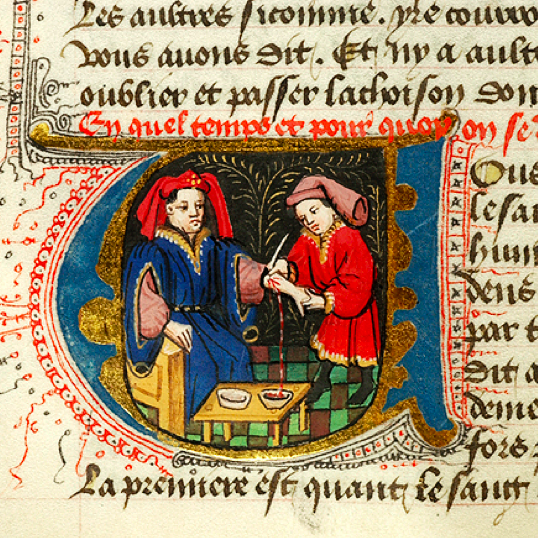 Les aultres sicomme. yre courro
vous auons dit. Et ny a ault
oublier et passer lachoison don
En quel temps et pour quoy on se
Ous
lesai
hum
dens
par t
dit a
deme
fors
La premiere est quant le sang